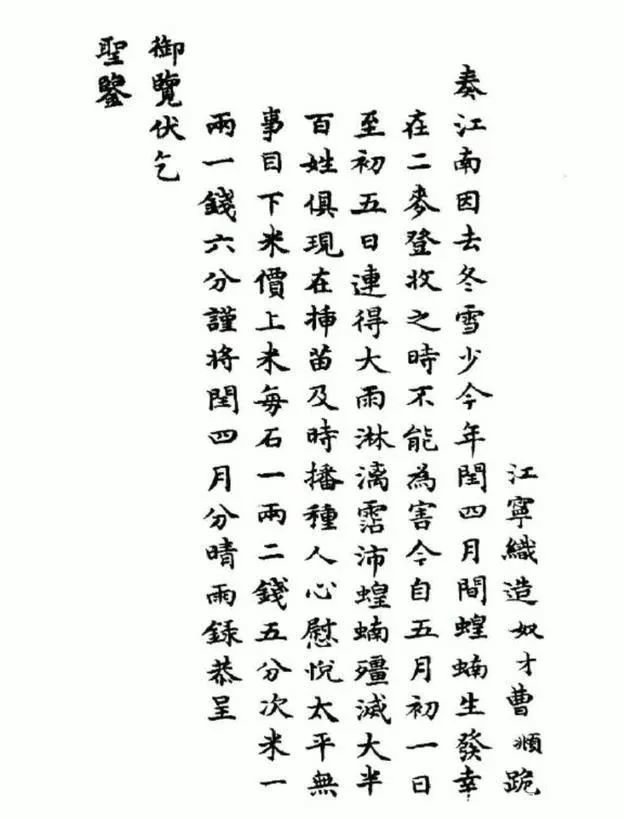 江寧織造奴才曹頫跪
奏江南因去冬雪少今年閏四月間蝗蝻生發幸
在二麥登收之時不能為害今自五月初一日
至初五日連得大雨淋漓霑沛蝗蝻殭滅大半
百姓俱現在揷苗及時播種人心慰悅太平無
事目下米價上米每石一兩二錢五分次米一
兩一錢六分謹將閏四月分晴雨錄恭呈
御覽伏乞
聖鑒